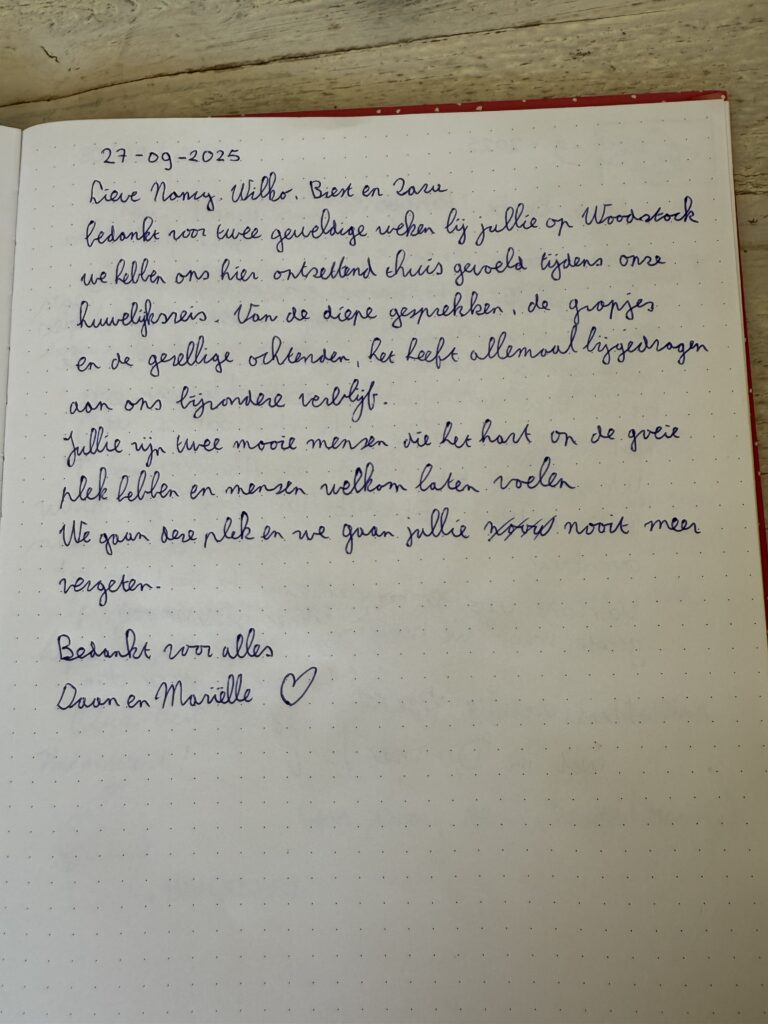 27-09-2025
Lieve Nancy, Wilko, Biest en Zazu
bedankt voor twee geweldige weken bij jullie op Woodstock
we hebben ons hier ontzettend thuis gevoeld tijdens onze
huwelijksreis. Van de diepe gesprekken, de grapjes
en de gezellige ochtenden, het heeft allemaal bijgedragen
aan ons bijzondere verblijf.
Jullie zijn twee mooie mensen die het hart op de goeie
plek hebben en mensen welkom laten voelen
We gaan deze plek en we gaan jullie nooit meer
vergeten.
Bedankt voor alles
Daan en Mariëlle